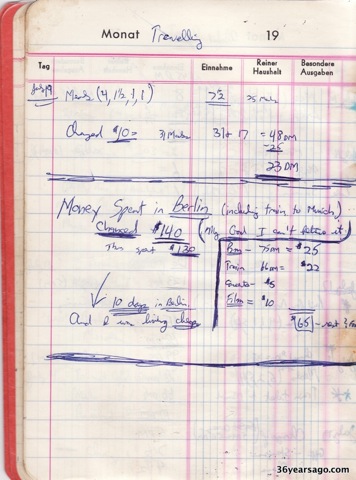 Monat Travelling 19
Tag Einnahme Reiner Haushalt Besondere Ausgaben
July 19 Meals (4, 1½, 1, 1)
Changed $10 = 31 Marks 31 + 17 = 48 DM
- 25
23 DM
Money Spent in Berlin (including train to Munich)
Changed $140 (My God I can't believe it)
Thus spent $130
Room - 75DM = $25
Train = $22
Sweets - $5
Film = $10
10 days in Berlin
$65 - rest
And I was living cheap
36yearsago.com